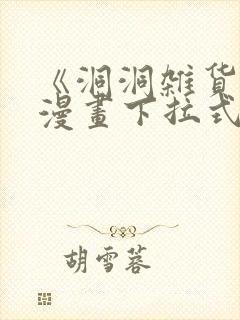 《洞洞雑货
漫畫下拉式
胡雪蓉